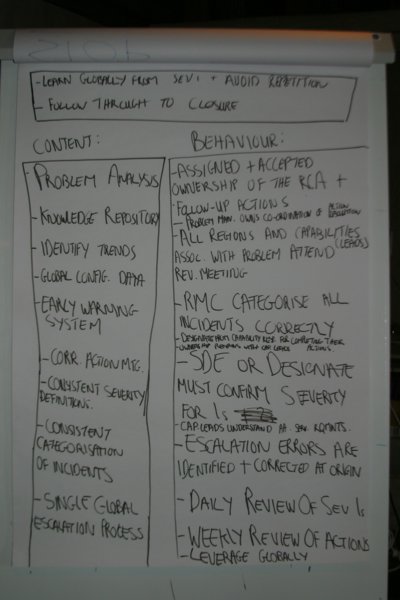 - LEARN GLOBALLY FROM SEV 1 + AVOID REPETITION
- FOLLOW THROUGH TO CLOSURE
CONTENT:
- PROBLEM ANALYSIS
- KNOWLEDGE REPOSITORY
- IDENTIFY TRENDS
- GLOBAL CONFIG. DATA
- EARLY WARNING
SYSTEM
- CORR. ACTION MTG.
- CONSISTENT SEVERITY
DEFINITIONS.
- CONSISTENT
CATEGORISATION
OF INCIDENTS
- SINGLE GLOBAL
ESCALATION PROCESS
BEHAVIOUR:
- ASSIGNED + ACCEPTED
OWNERSHIP OF THE RCA +
FOLLOW-UP ACTIONS
- PROBLEM MAN. OWNS CO-ORDINATION OF ACTION
- ALL REGIONS AND CAPABILITIES
(LEADS)
ASSOC. WITH PROBLEM ATTEND
REV. MEETING
- RMC CATEGORISE ALL
INCIDENTS CORRECTLY
- DESIGNATE FROM CAPABILITY FOR COMPLETING THEIR
OWNERSHIP REMAINS WITH CAP. LEADS ACTIONS
- SDE OR DESIGNATE
MUST CONFIRM SEVERITY
FOR 1s
CAP. LEADS UNDERSTAND SEV. RQMNTS.
- ESCALATION ERRORS ARE
IDENTIFIED + CORRECTED AT ORIGIN
- DAILY REVIEW OF SEV 1s
- WEEKLY REVIEW OF ACTIONS
- LEVERAGE GLOBALLY